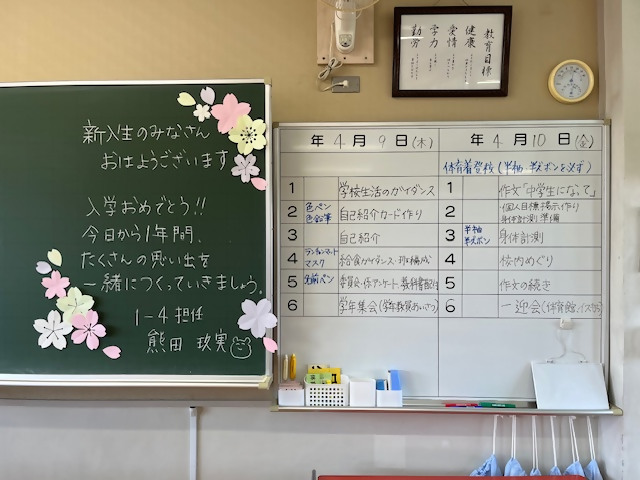 新入生のみなさん
おはようございます
入学おめでとう!!
今日から1年間、
たくさんの思い出を
一緒につくっていきましょう。
1-4担任
熊田 玖実
教育目標
健康
愛情
学力
勤労
年 4月 9日(木)
1 学校生活のガイダンス
2 色ペン 色鉛筆 自己紹介カード作り
3 自己紹介
4 ランチョンマット マスク 給食ガイダンス・班構成
5 名前ペン 委員・係アンケート、教科書配付
6 学年集会(学年教員あいさつ)
年 4月 10日(金)
体育着登校(半袖、半ズボンを必ず)
1 作文「中学生になって」
2 個人目標掲示作り
身体計測準備
3 半袖 半ズボン 身体計測
4 校内めぐり
5 作文の続き
6 一迎会(体育館、イスなし)